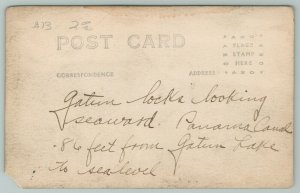 AB 2@
POST CARD
AZO
PLACE
STAMP
HERE
AZO
CORRESPONDENCE
ADDRESS
Gatun locks looking
seaward. Panama Canal
.86 feet from Gatun Lake
to sea level